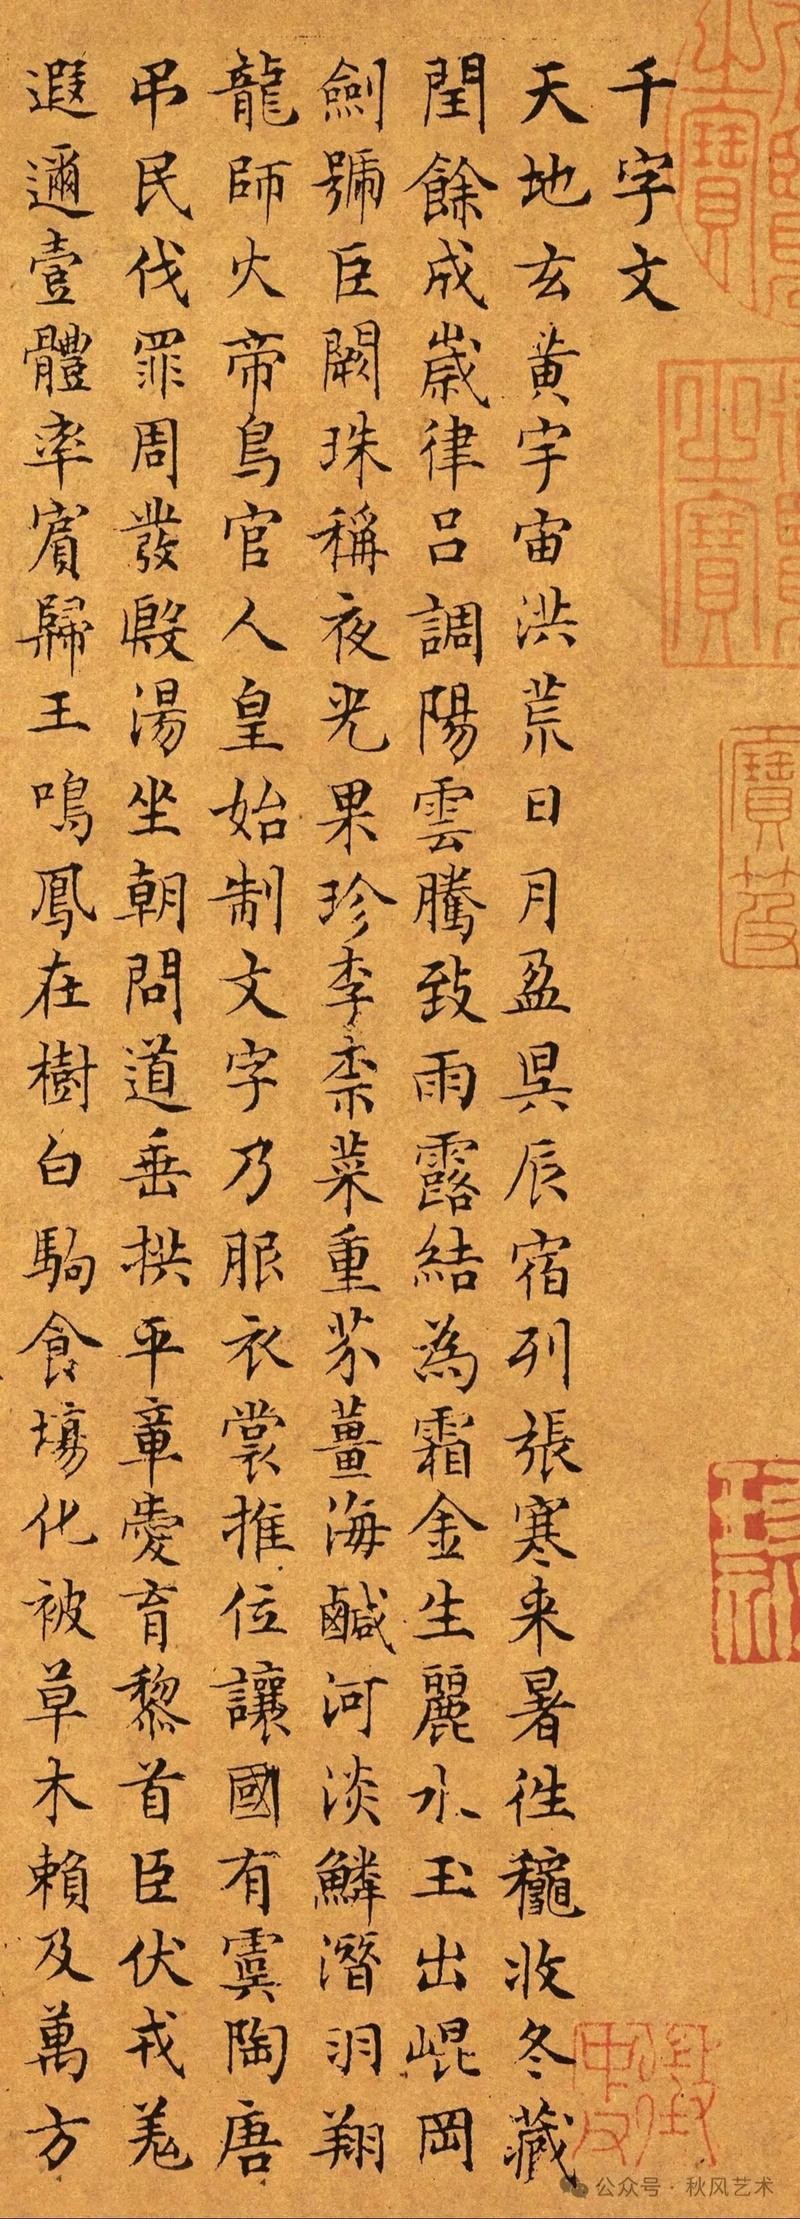 千字文
天地玄黄宇宙洪荒日月盈昃辰宿列張寒来暑往穐收冬藏
閏餘成歲律吕調陽雲騰致雨露結為霜金生麗水玉出崐岡
劒號巨闕珠稱夜光果珍李柰菜重芥薑海鹹河淡鱗潛羽翔
龍師火帝鳥官人皇始制文字乃服衣裳推位讓國有虞陶唐
吊民伐罪周發殷湯坐朝問道垂拱平章愛育黎首臣伏戎羌
遐邇壹體率賓歸王鳴鳳在樹白駒食場化被草木賴及萬方
公众号·秋风艺术